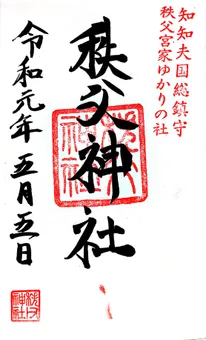 知知夫国総鎮守
秩父宮家ゆかりの社
秩父神社
令和元年五月五日